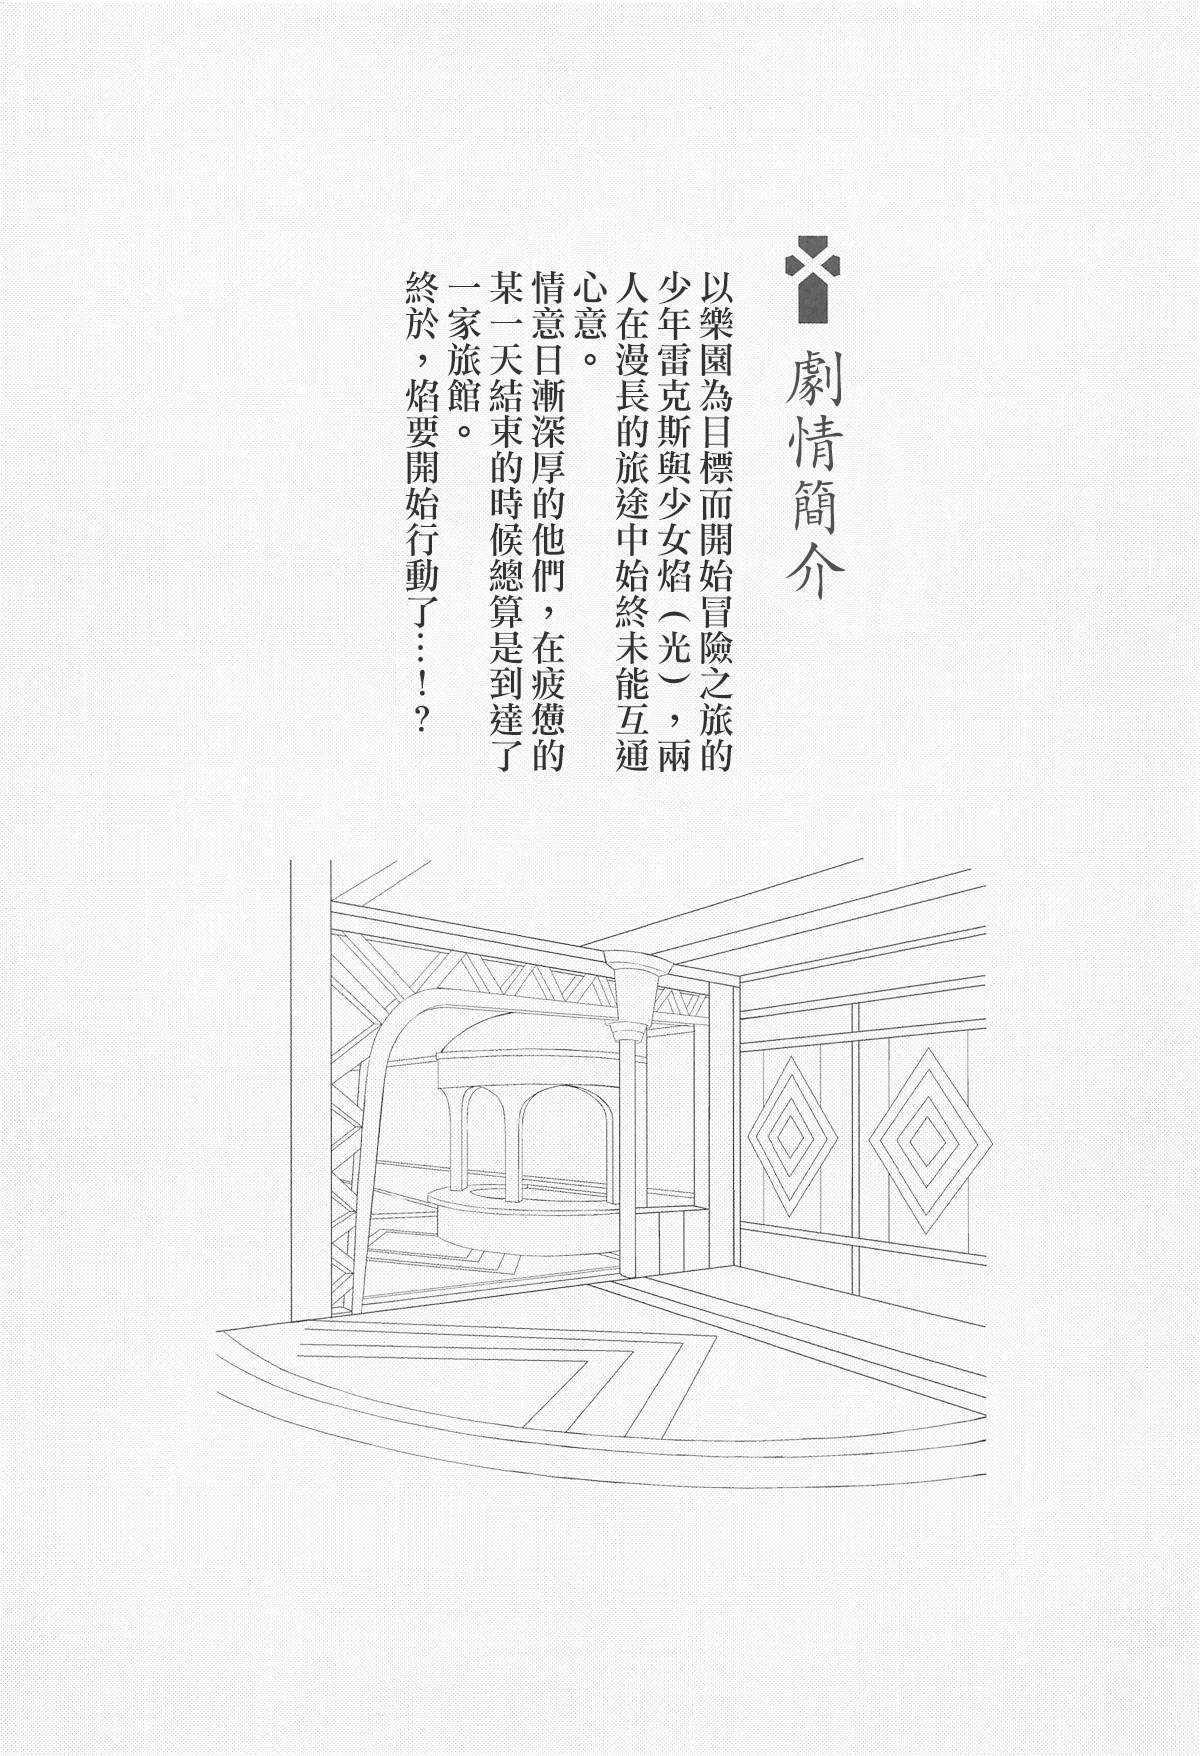 劇情簡介
以樂園為目標而開始冒險之旅的
少年雷克斯與少女焰（光），兩
人在漫長的旅途中始終未能互通
心意。
情意日漸深厚的他們，在疲憊的
某一天結束的時候總算是到達了
一家旅館。
終於，焰要開始行動了…！？